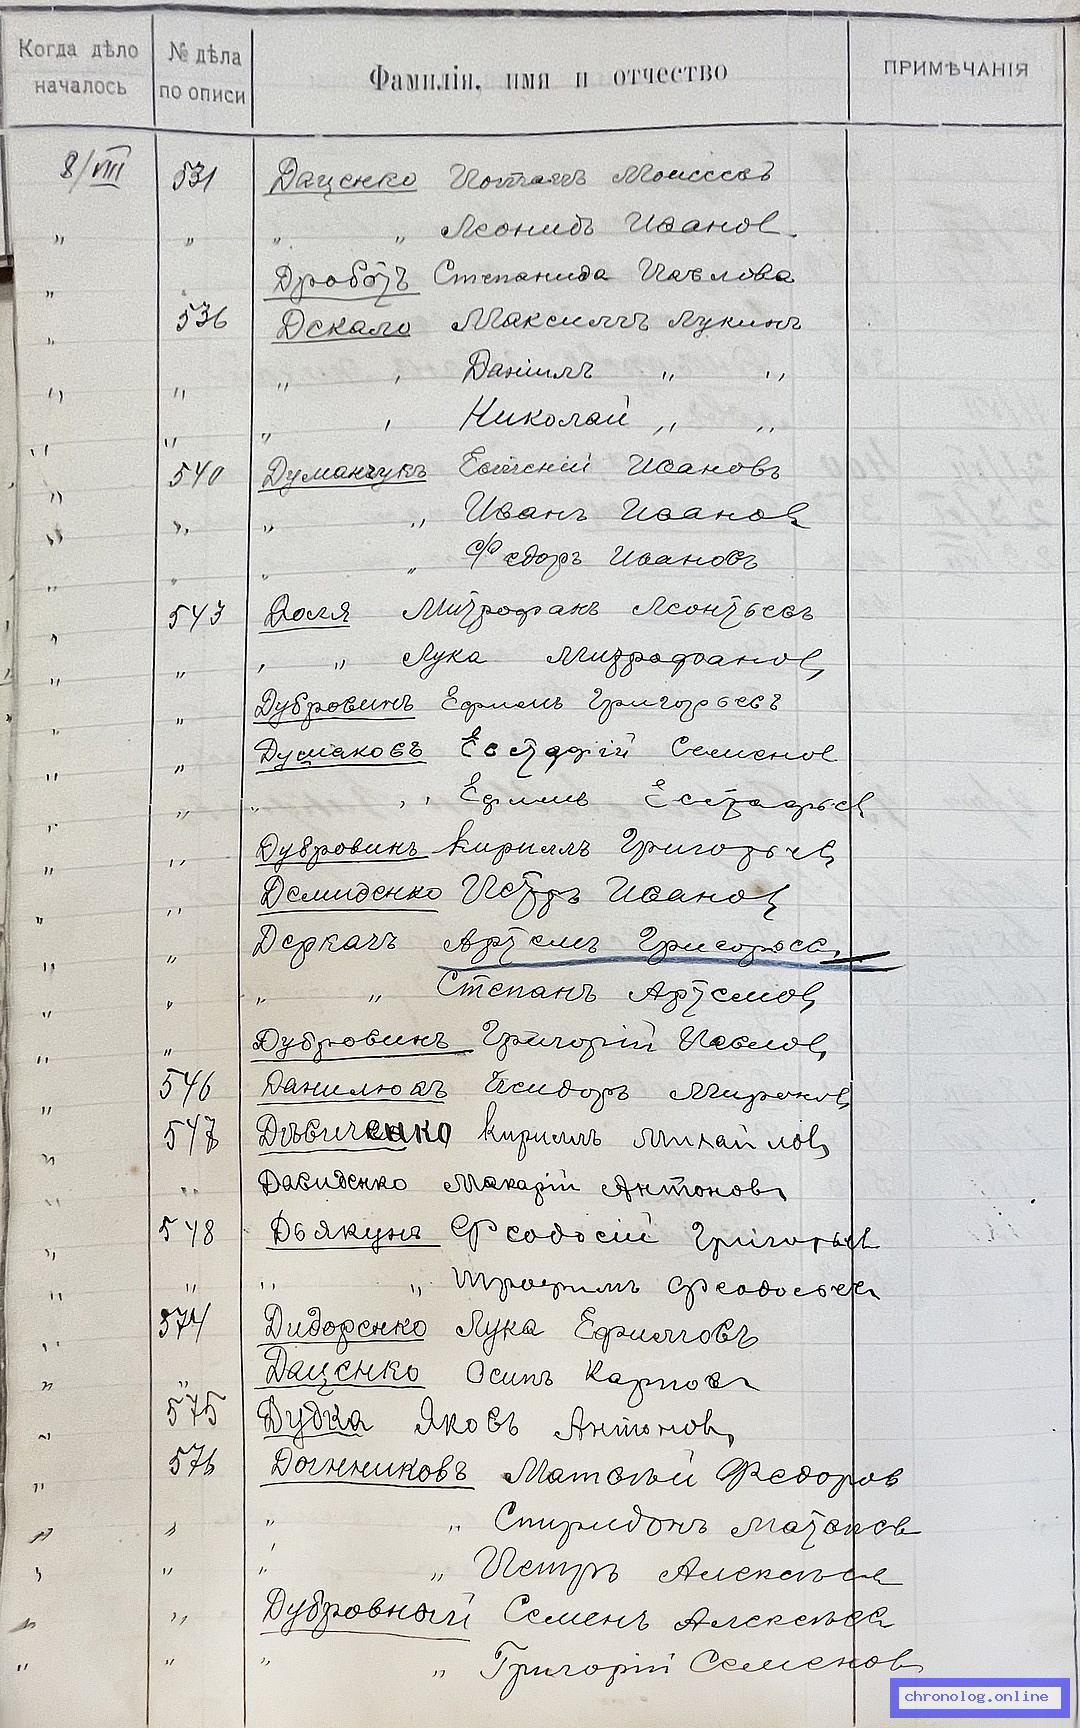 Когда дѣло началось № дѣла по описи Фамилія, имя и отчество ПРИМѢЧАНІЯ
8/VIII 531 Даценко Потапъ Моисеевъ
„ „ „ „ Леонидъ Иванов
„ Дроботъ Степанида Павлова
„ 536 Дскало Максимъ Лукинъ
„ „ „ „ Даніилъ „ „
„ „ „ „ Николай „ „
„ 540 Думанчукъ Евгеній Ивановъ
„ „ „ „ Иванъ Иванов
„ „ „ „ Ѳедоръ Ивановъ
„ 543 Доля Митрофанъ Леонтьевъ
„ „ „ „ Лука Митрофанов
„ „ Дубровинъ Ефимъ Григорьевъ
„ „ Думаковъ Естафій Семенов
„ „ „ „ Ефимъ Естафьев
„ „ Дубровинъ Кириллъ Григорьев
„ „ Демиденко Петръ Иванов
„ „ Деркачъ Артемъ Григорьев
„ „ „ „ Степанъ Артемов
„ „ Дубровинъ Григорій Павлов
„ 546 Данилюкъ Исидоръ Миронов
„ 547 Дѣвиченко Кириллъ Михайлов
„ „ Давиденко Макарій Антонов
„ 548 Дьякунъ Феодосій Григорьев
„ „ „ „ Трофимъ Феодосьев
„ 574 Дидоренко Лука Ефимовъ
„ „ Даценко Осипъ Карпов
„ 575 Дудка Яковъ Антонов
„ 576 Донниковъ Матвѣй Федоров
„ „ „ „ Спиридонъ Матвѣев
„ „ „ „ Петръ Алексѣев
„ „ Дубровный Семенъ Алексѣев
„ „ „ „ Григорій Семенов
chronolog.online